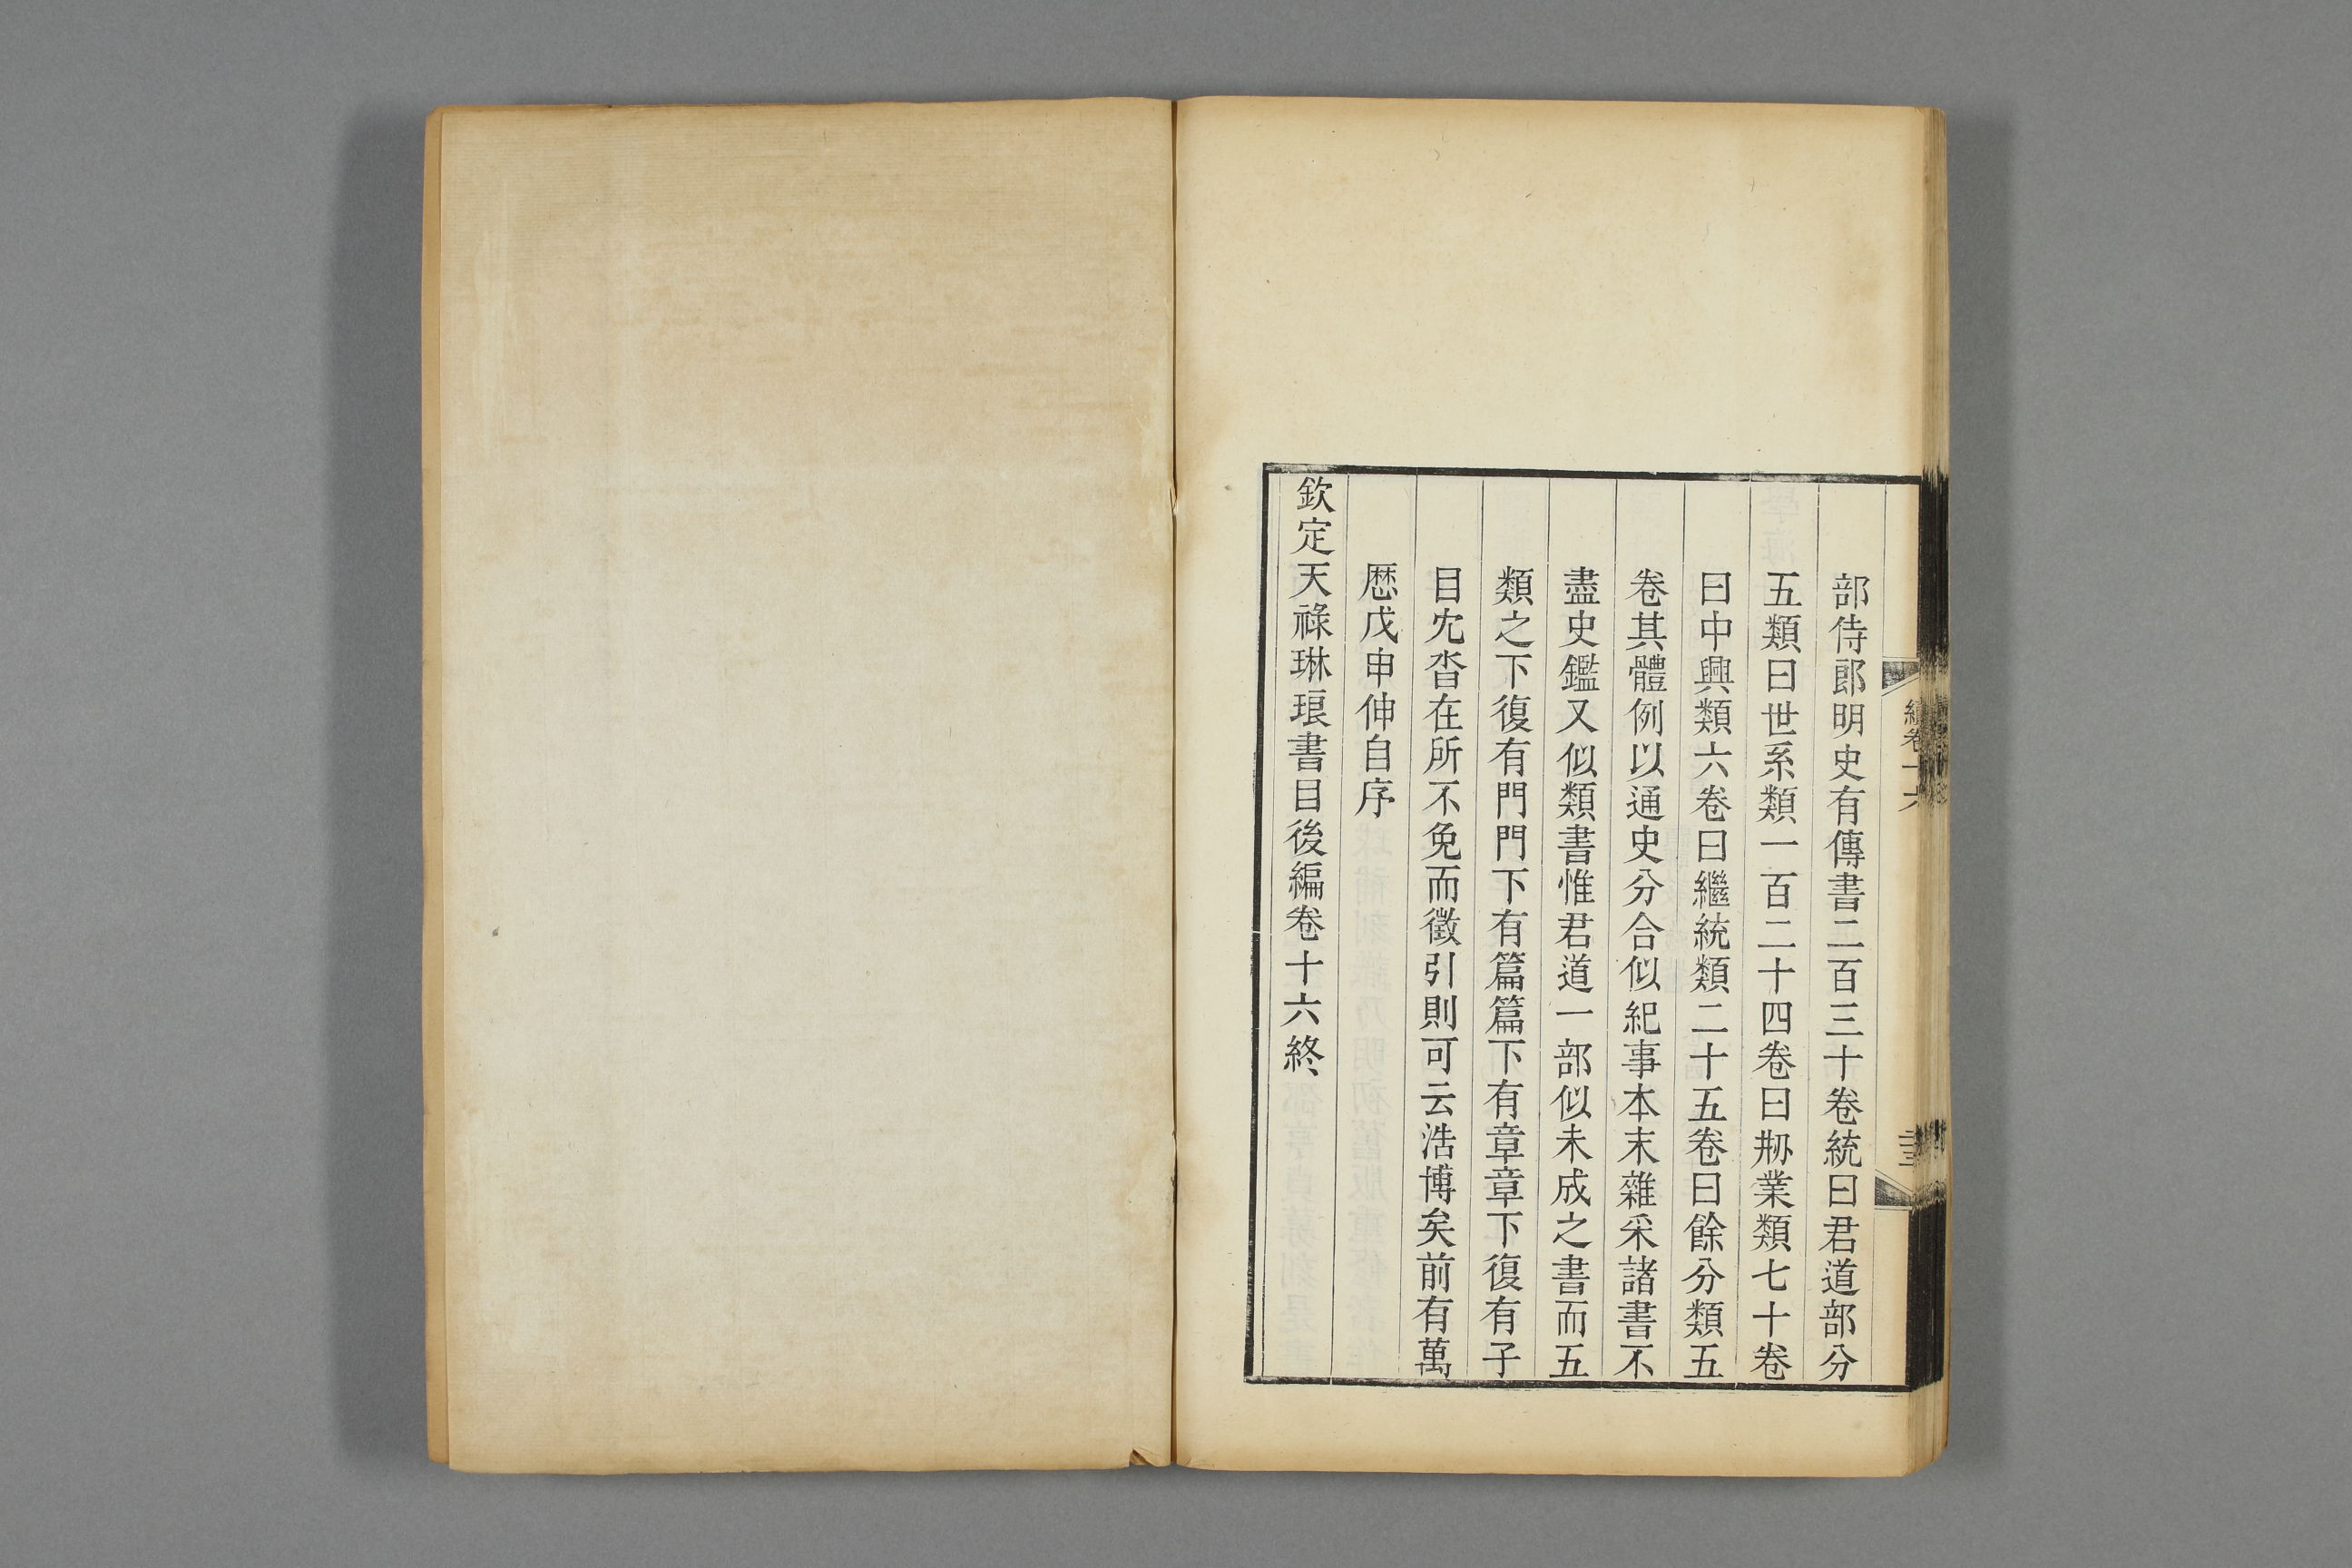 部侍郎明史有傳書二百三十卷統曰君道部分
五類曰世系類一百二十四卷曰剏業類七十卷
曰中興類六卷曰繼統類二十五卷曰餘分類五
卷其體例以通史分合似紀事本末雜采諸書不
盡史鑑又似類書惟君道一部似未成之書而五
類之下復有門門下有篇篇下有章章下復有子
目冘沓在所不免而徵引則可云浩博矣前有萬
厯戊申伸自序
欽定天祿琳琅書目後編卷十六終
續卷十六